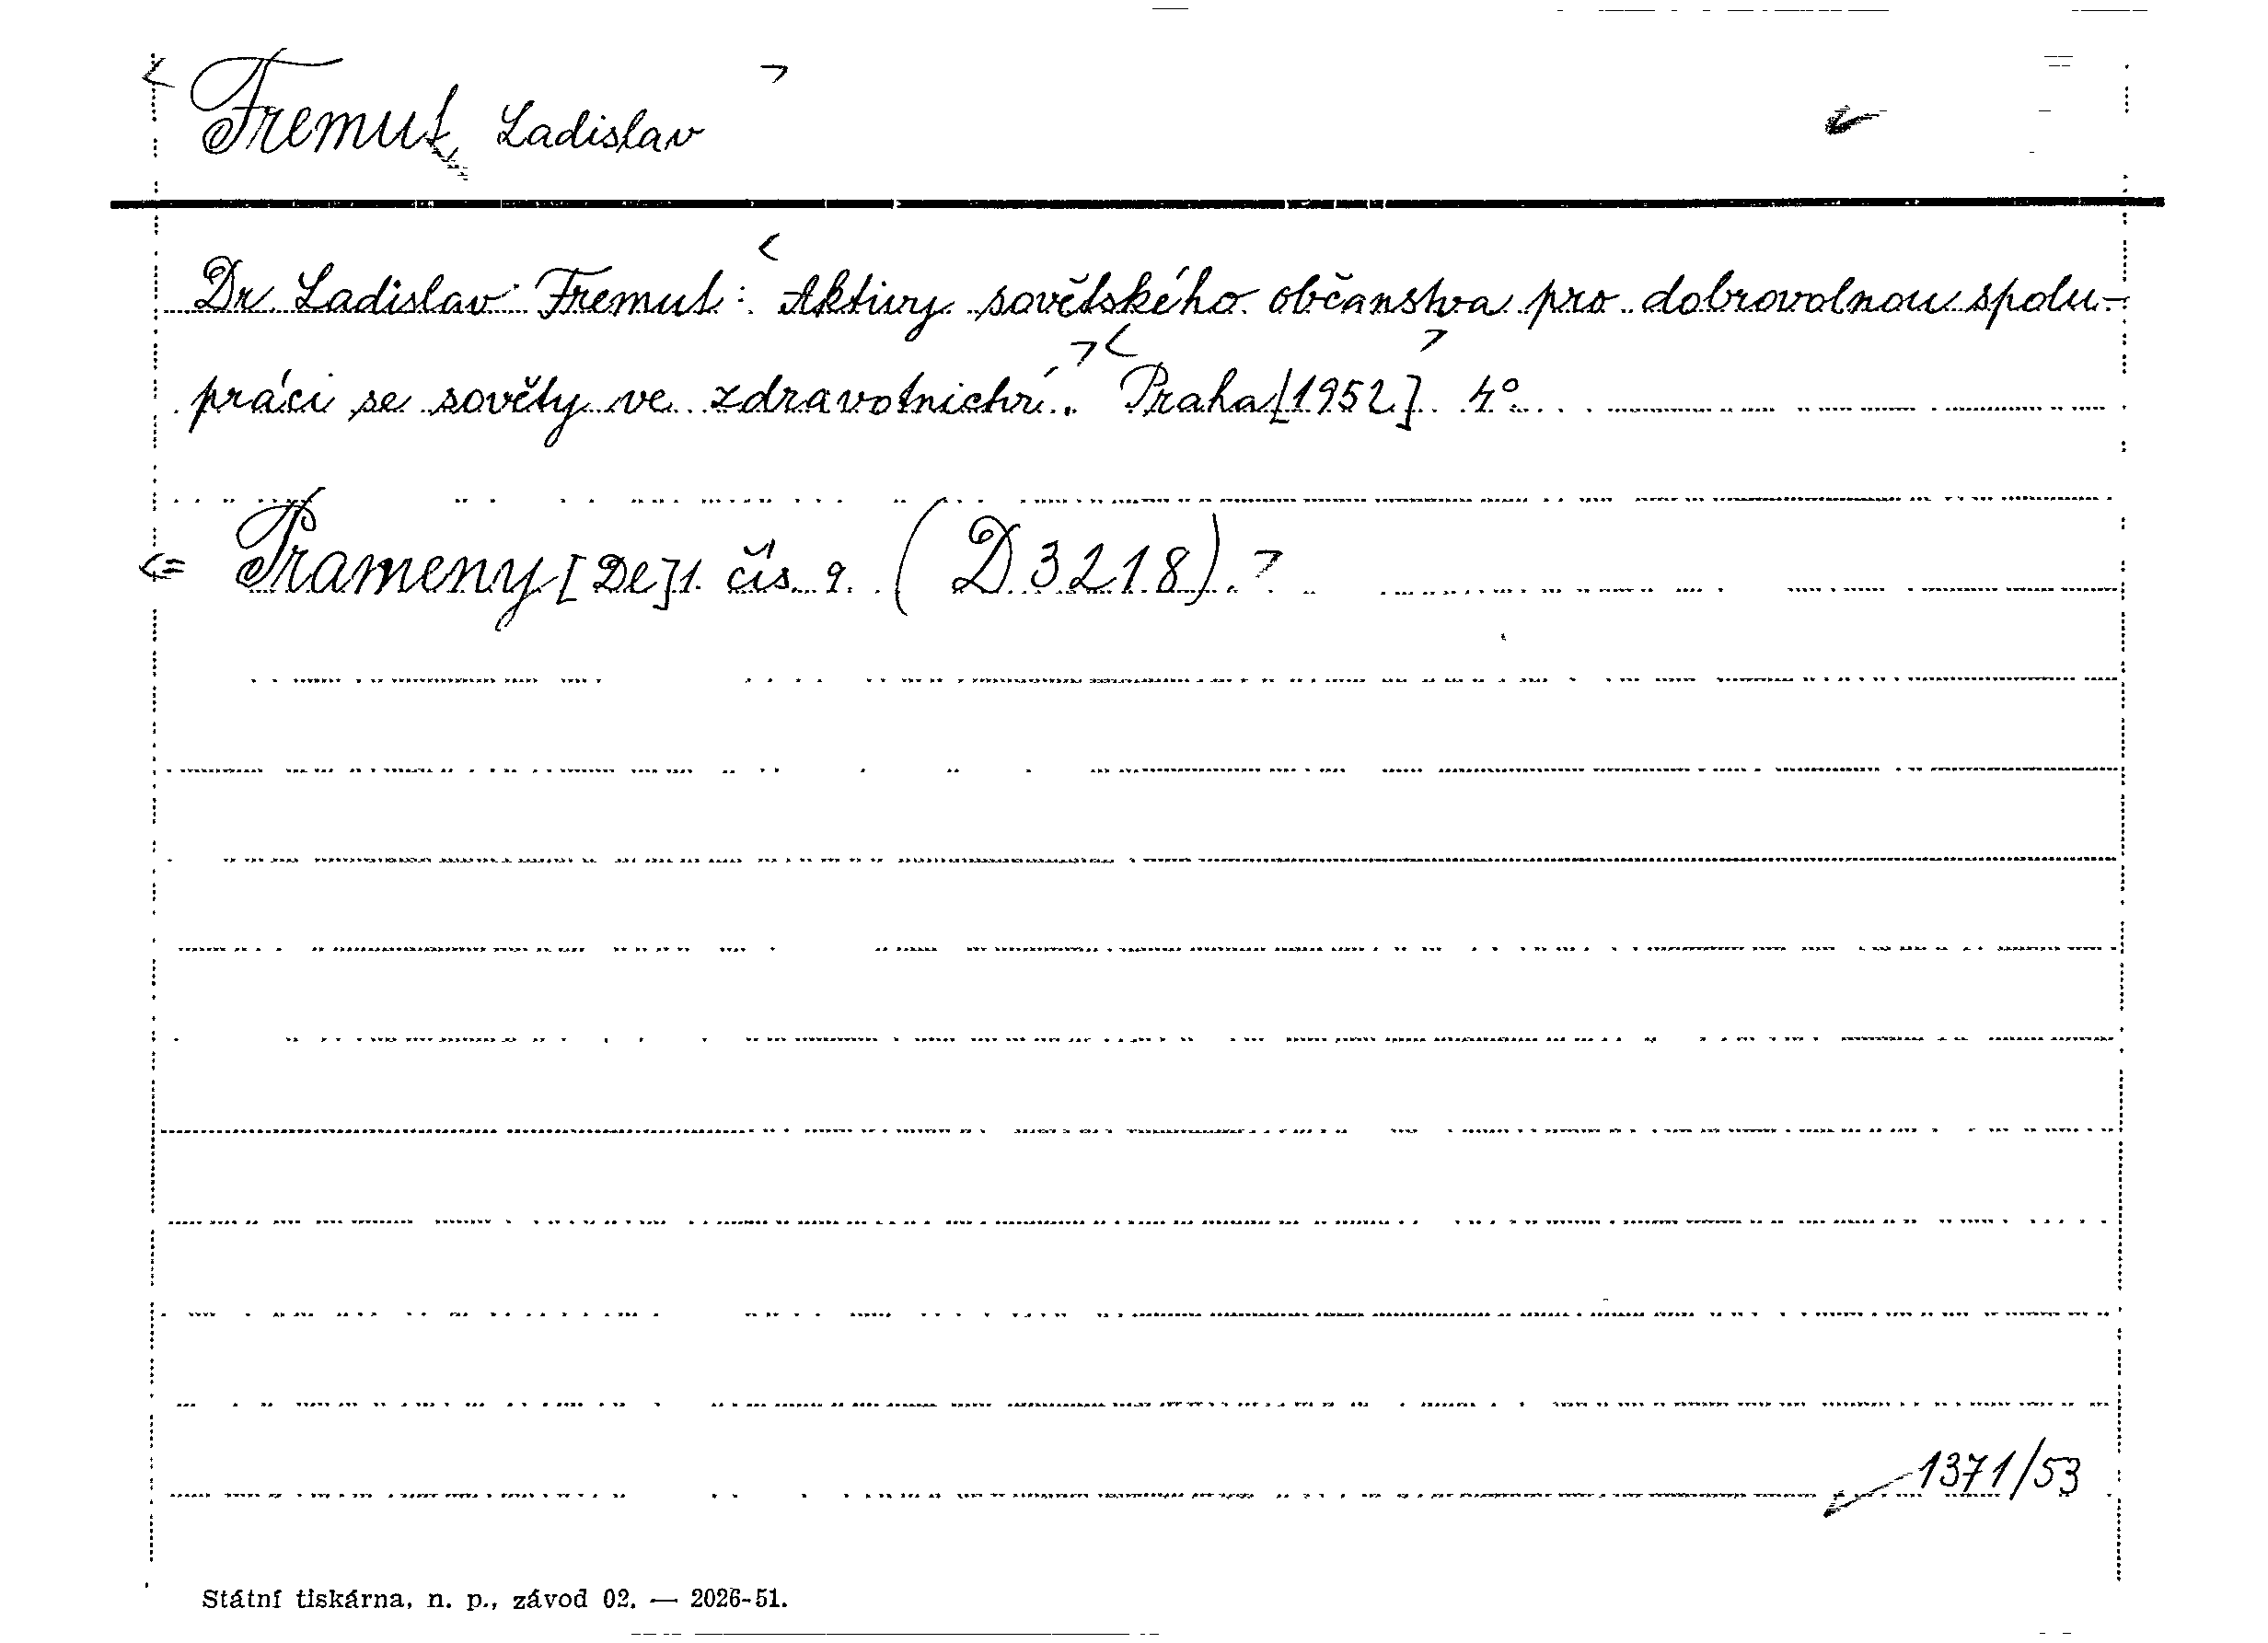 Fremut, Ladislav
Dr. Ladislav Fremut: Aktivy sovětského občanstva pro dobrovolnou spolu-
práci se sověty ve zdravotnichví. Praha [1952]. 4°.
Prameny [De] 1. čís. 9. (D 3218).
1371/53
Státní tiskárna, n. p., závod 02. — 2026-51.